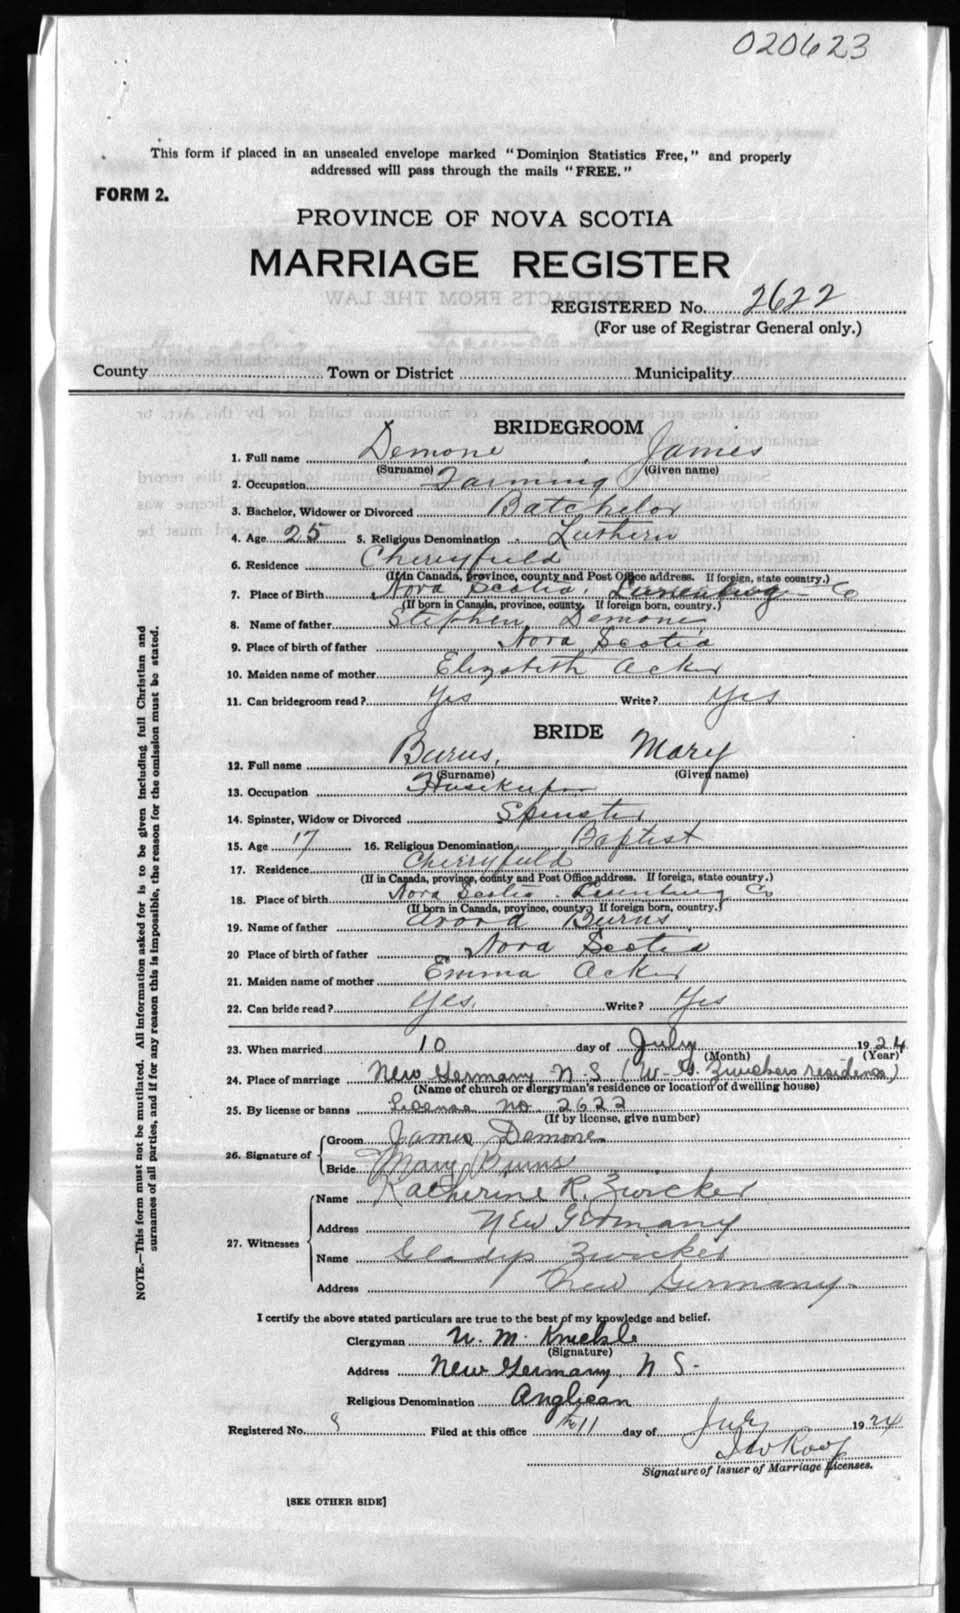 020623
This form if placed in an unsealed envelope marked "Dominion Statistics Free," and properly
addressed will pass through the mails "FREE."
FORM 2.
PROVINCE OF NOVA SCOTIA
MARRIAGE REGISTER
REGISTERED No. 2622
(For use of Registrar General only.)
County Town or District Municipality
BRIDEGROOM
1. Full name Demone James
(Surname) (Given name)
2. Occupation Farming
3. Bachelor, Widower or Divorced Batchelor
4. Age 25 5. Religious Denomination Luthern
6. Residence Cherryfield
(If in Canada, province, county and Post Office address. If foreign, state country.)
7. Place of Birth Nova Scotia, Lunenburg Co
(If born in Canada, province, county. If foreign born, country.)
8. Name of father Stephen Demone
9. Place of birth of father Nova Scotia
10. Maiden name of mother Elizabeth Acker
11. Can bridegroom read? Yes Write? Yes
BRIDE
12. Full name Burns, Mary
(Surname) (Given name)
13. Occupation
14. Spinster, Widow or Divorced Spinster
15. Age 17 16. Religious Denomination Baptist
17. Residence Cherryfield
(If in Canada, province, county and Post Office address. If foreign, state country.)
18. Place of birth Nova Scotia Co
(If born in Canada, province, county. If foreign born, country.)
19. Name of father Burns
20 Place of birth of father Nova Scotia
21. Maiden name of mother Emma Acker
22. Can bride read? Yes. Write? Yes
23. When married 10 day of July 1924
(Month) (Year)
24. Place of marriage New Germany N.S. (W. G. Zwickers residence)
(Name of church or clergyman's residence or location of dwelling house)
25. By license or banns License no. 2622
(If by license, give number)
26. Signature of Groom James Demone
Bride Mary Burns
27. Witnesses Name Katherine R. Zwicker
Address New Germany
Name Gladys Zwicker
Address New Germany.
I certify the above stated particulars are true to the best of my knowledge and belief.
Clergyman
(Signature)
Address New Germany, N S.
Religious Denomination Anglican
Registered No. 8 Filed at this office 11 day of July 1924
Signature of Issuer of Marriage Licenses.
[SEE OTHER SIDE]
NOTE.—This form must not be mutilated. All information asked for is to be given including full Christian and
surnames of all parties, and if for any reason this is impossible, the reason for the omission must be stated.